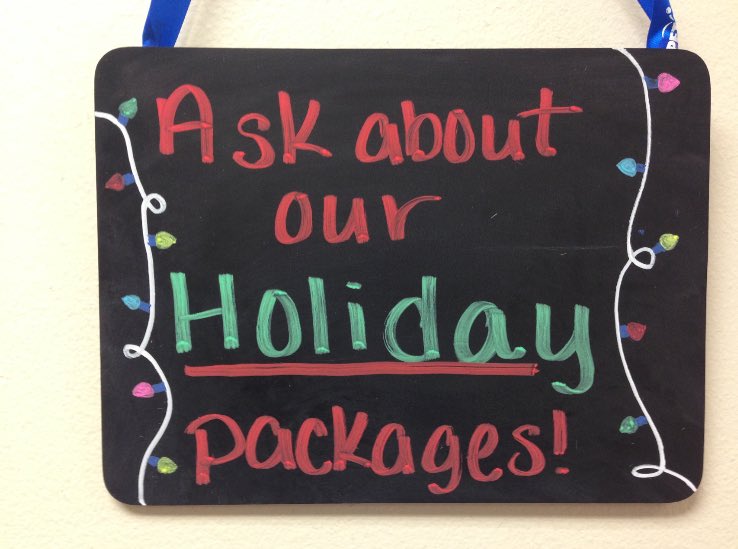 Ask about
our
Holiday
packages!